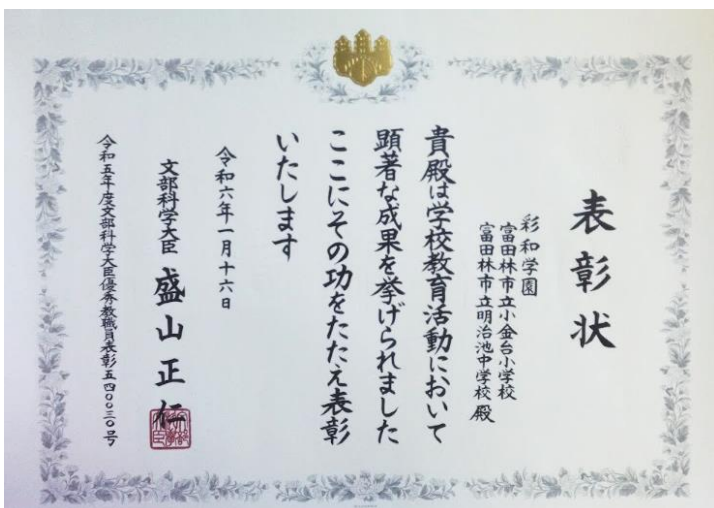 表彰状
彩和学園
富田林市立小金台小学校
富田林市立明治池中学校 殿
貴殿は学校教育活動において
顕著な成果を挙げられました
ここにその功をたたえ表彰
いたします
令和六年一月十六日
文部科学大臣 盛山正仁
令和五年度文部科学大臣優秀教職員表彰五四〇〇三〇号